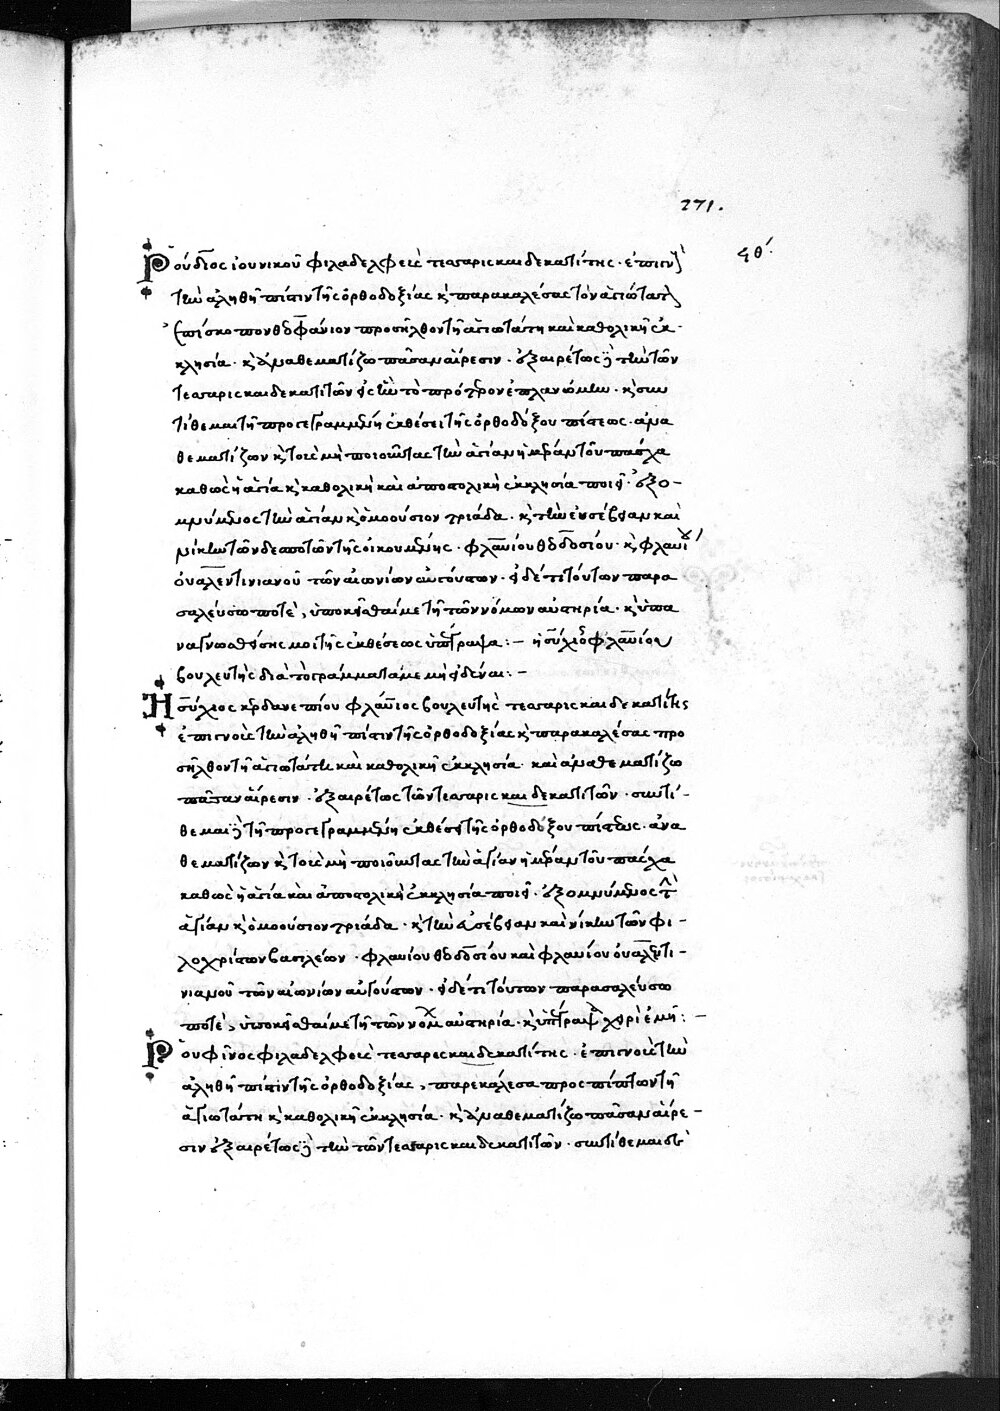 271.
ϟθ΄.
Ρούδιος ἰουνικοῦ φιλαδελφεὺς τεσσαρισκαιδεκατίτης· ἐπιγνοὺς
τὴν ἀληθῆ πίστιν τῆς ὀρθοδοξίας κ παρακαλέσας τὸν ἁγιώτατον
ἐπίσκοπον θεοφάνιον προσῆλθον τῆ ἁγιωτάτη καὶ καθολικῆ ἐκ-
κλησία· κ ἀναθεματίζω πᾶσαν αἵρεσιν· ἐξαιρέτως δὲ τὴν τῶν
τεσσαρισκαιδεκατιτῶν ἐν ᾗ τὸ πρότερον ἐπλανώμην· κ συν
τίθεμαι τῆ προγεγραμμένη ἐκθέσει τῆς ὀρθοδόξου πίστεως· ἀνα
θεματίζων κ τοὺς μὴ ποιοῦντας τὴν ἁγίαν ἡμέραν τοῦ πάσχα
καθὼς ἡ ἁγία κ καθολικὴ καὶ ἀποστολικὴ ἐκκλησία ποιεῖ· ἐξο-
μνύμενος τὴν ἁγίαν κ ὁμοούσιον τριάδα· κ τὴν εὐσέβειαν καὶ
νίκην τῶν δεσποτῶν τῆς οἰκουμένης· φλαυίου θεοδοσίου· κ φλαυίου
οὐαλεντινιανοῦ τῶν αἰωνίων αὐγούστων· εἰ δέ τι τούτων παρα
σαλεύσω ποτὲ, ὑποκεῖσθαί με τῆ τῶν νόμων αὐστηρία· κ ὑπα
ναγνωσθείσης μοι τῆς ἐκθέσεως ὑπέγραψα:- ἡσύχιος φλαυίου
βουλευτὴς διὰ τὸ γράμματά με μὴ εἰδέναι:-
Ησύχιος κ φλαύιος βουλευτὴς τεσσαρισκαιδεκατίτης
ἐπιγνοὺς τὴν ἀληθῆ πίστιν τῆς ὀρθοδοξίας κ παρακαλέσας προ
σῆλθον τῆ ἁγιωτάτη καὶ καθολικῆ ἐκκλησία· καὶ ἀναθεματίζω
πᾶσαν αἵρεσιν· ἐξαιρέτως τῶν τεσσαρισκαιδεκατιτῶν· συντί-
θεμαι δὲ τῆ προγεγραμμένη ἐκθέσει τῆς ὀρθοδόξου πίστεως· ἀνα
θεματίζων κ τοὺς μὴ ποιοῦντας τὴν ἁγίαν ἡμέραν τοῦ πάσχα
καθὼς ἡ ἁγία καὶ ἀποστολικὴ ἐκκλησία ποιεῖ· ἐξομνύμενος τὴν
ἁγίαν κ ὁμοούσιον τριάδα· κ τὴν εὐσέβειαν καὶ νίκην τῶν φι-
λοχρίστων βασιλέων· φλαυίου θεοδοσίου καὶ φλαυίου οὐαλεντι-
νιανοῦ τῶν αἰωνίων αὐγούστων· εἰ δέ τι τούτων παρασαλεύσω
ποτὲ, ὑποκεῖσθαί με τῆ τῶν νόμων αὐστηρία· κ ὑπέγραψα χειρὶ ἐμῆ:-
Ρουφῖνος φιλαδελφεὺς τεσσαρισκαιδεκατίτης· ἐπιγνοὺς τὴν
ἀληθῆ πίστιν τῆς ὀρθοδοξίας, παρεκάλεσα προσπίπτων τῆ
ἁγιωτάτη κ καθολικῆ ἐκκλησία· κ ἀναθεματίζω πᾶσαν αἵρε-
σιν ἐξαιρέτως δὲ τὴν τῶν τεσσαρισκαιδεκατιτῶν· συντίθεμαι δὲ